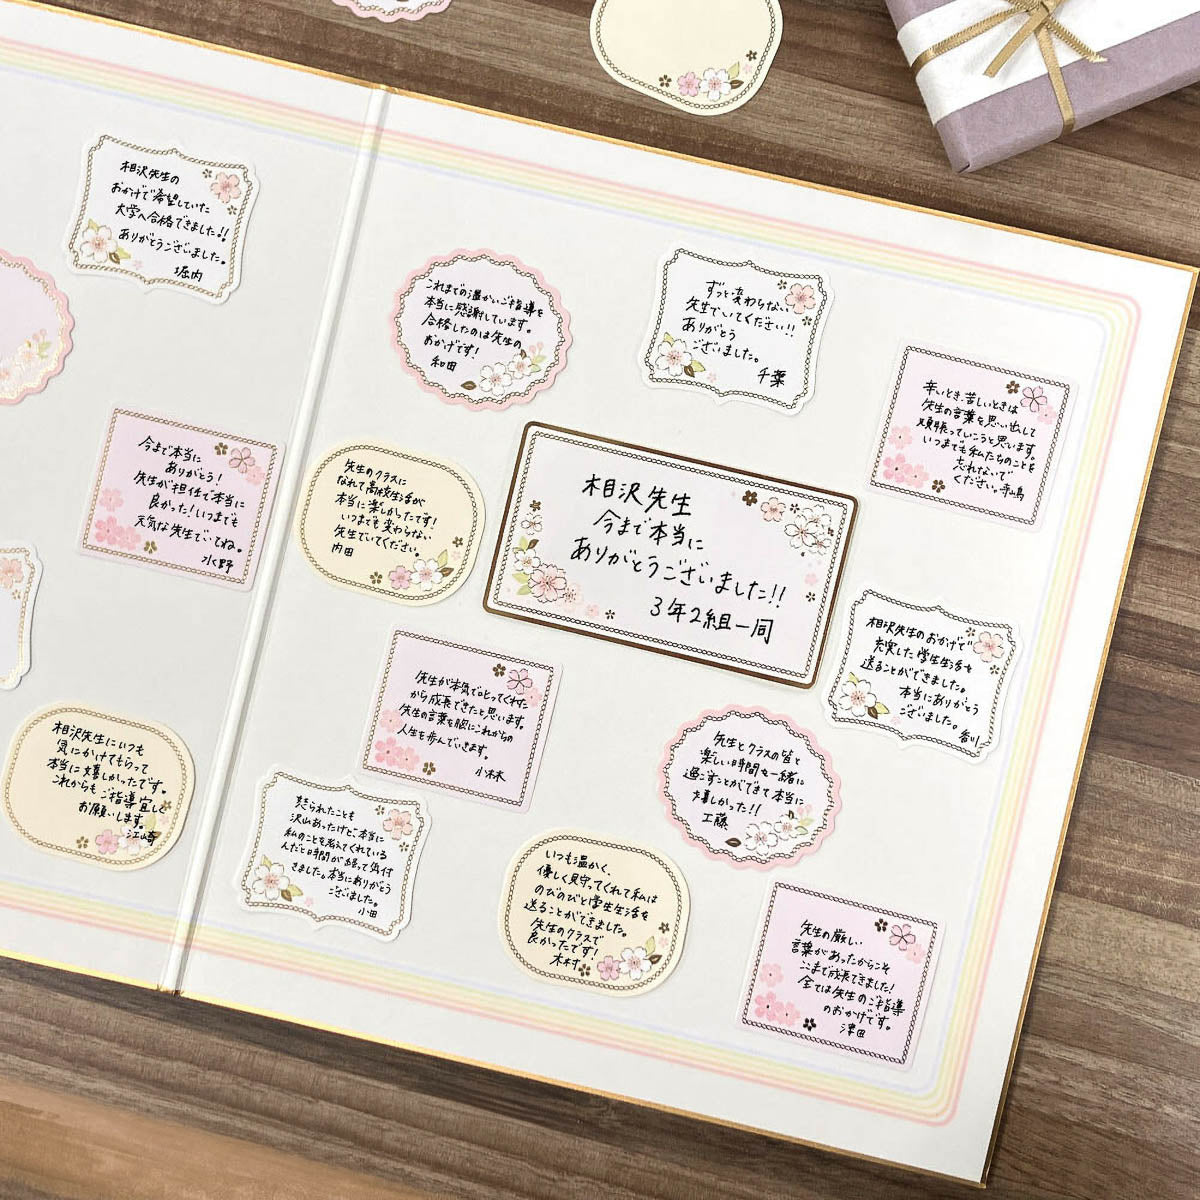 相沢先生の
おかげで希望していた
大学へ合格できました!!
ありがとうございました。
堀内
今まで本当に
ありがとう!
先生が担任で本当に
良かった!いつまでも
元気な先生でいてね。
水野
相沢先生にいつも
気にかけてもらって
本当に嬉しかったです!
これからもご指導宜しく
お願いします。
江崎
これまでの温かいご指導を
本当に感謝しています。
合格したのは先生の
おかげです!
和田
ずっと変わらない
先生でいてください!!
ありがとう
ございました。
千葉
辛いとき、苦しいときは
先生の言葉を思い出して
頑張っていこうと思います。
いつまでも私たちのことを
忘れないで
ください。寺嶋
先生のクラスに
なれて高校生活が
本当に楽しかったです!
いつまでも変わらない
先生でいてください。
内田
相沢先生
今まで本当に
ありがとうございました!!
3年2組一同
相沢先生のおかげで
充実した学生生活を
送ることができました。
本当にありがとう
ございました。
香川
先生が本気で叱ってくれた
から成長できたと思います。
先生の言葉を胸にこれからの
人生を歩んでいきます。
小林
先生とクラスの皆と
楽しい時間を一緒に
過すことができて本当に
嬉しかった!!
工藤
怒られたことも
沢山あったけど、本当に
私のことを考えてくれている
んだと時間が経って気付
きました。本当にありがとう
ございました。
小田
いつも温かく、
優しく見守ってくれて私は
のびのびと学生生活を
送ることができました。
先生のクラスで
良かったです!
木村
先生の厳しい
言葉があったからこそ
ここまで成長できました!
全ては先生のご指導
のおかげです。
津田